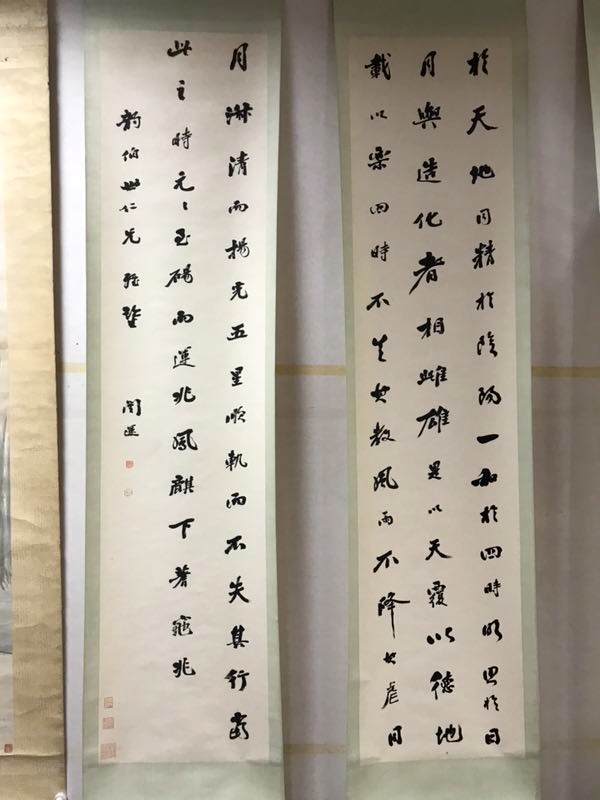 於天地同精於陰陽一和於四時明照於日
月與造化者相雌雄是以天覆以德地
載以樂四時不失其敘風雨不降其虐日
月淑清而揚光五星順軌而不失其行當
此之時元元至碭而運兆鳳麒下蓍龜兆
韵伯世仁兄雅鑒